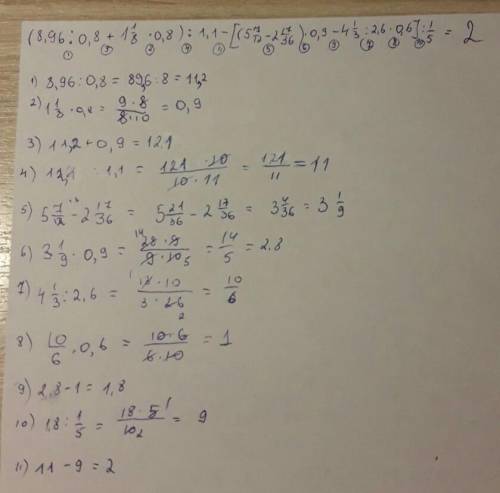 (8,96 : 0,8 + 1 1/8 · 0,8) : 1,1 - [(5 7/12 - 2 17/36) · 0,9 - 4 1/3 : 2,6 · 0,6] : 1/5 = 2
1) 8,96 : 0,8 = 89,6 : 8 = 11,2
2) 1 1/8 · 0,8 = 9·8/8·10 = 0,9
3) 11,2 + 0,9 = 12,1
4) 12,1 : 1,1 = 121·10/10·11 = 121/11 = 11
5) 5 7/12 - 2 17/36 = 5 21/36 - 2 17/36 = 3 4/36 = 3 1/9
6) 3 1/9 · 0,9 = 28·9/9·10 = 14/5 = 2,8
7) 4 1/3 : 2,6 = 13·10/3·26 = 10/6
8) 10/6 · 0,6 = 10·6/6·10 = 1
9) 2,8 - 1 = 1,8
10) 1,8 : 1/5 = 18·5/10 = 9
11) 11 - 9 = 2